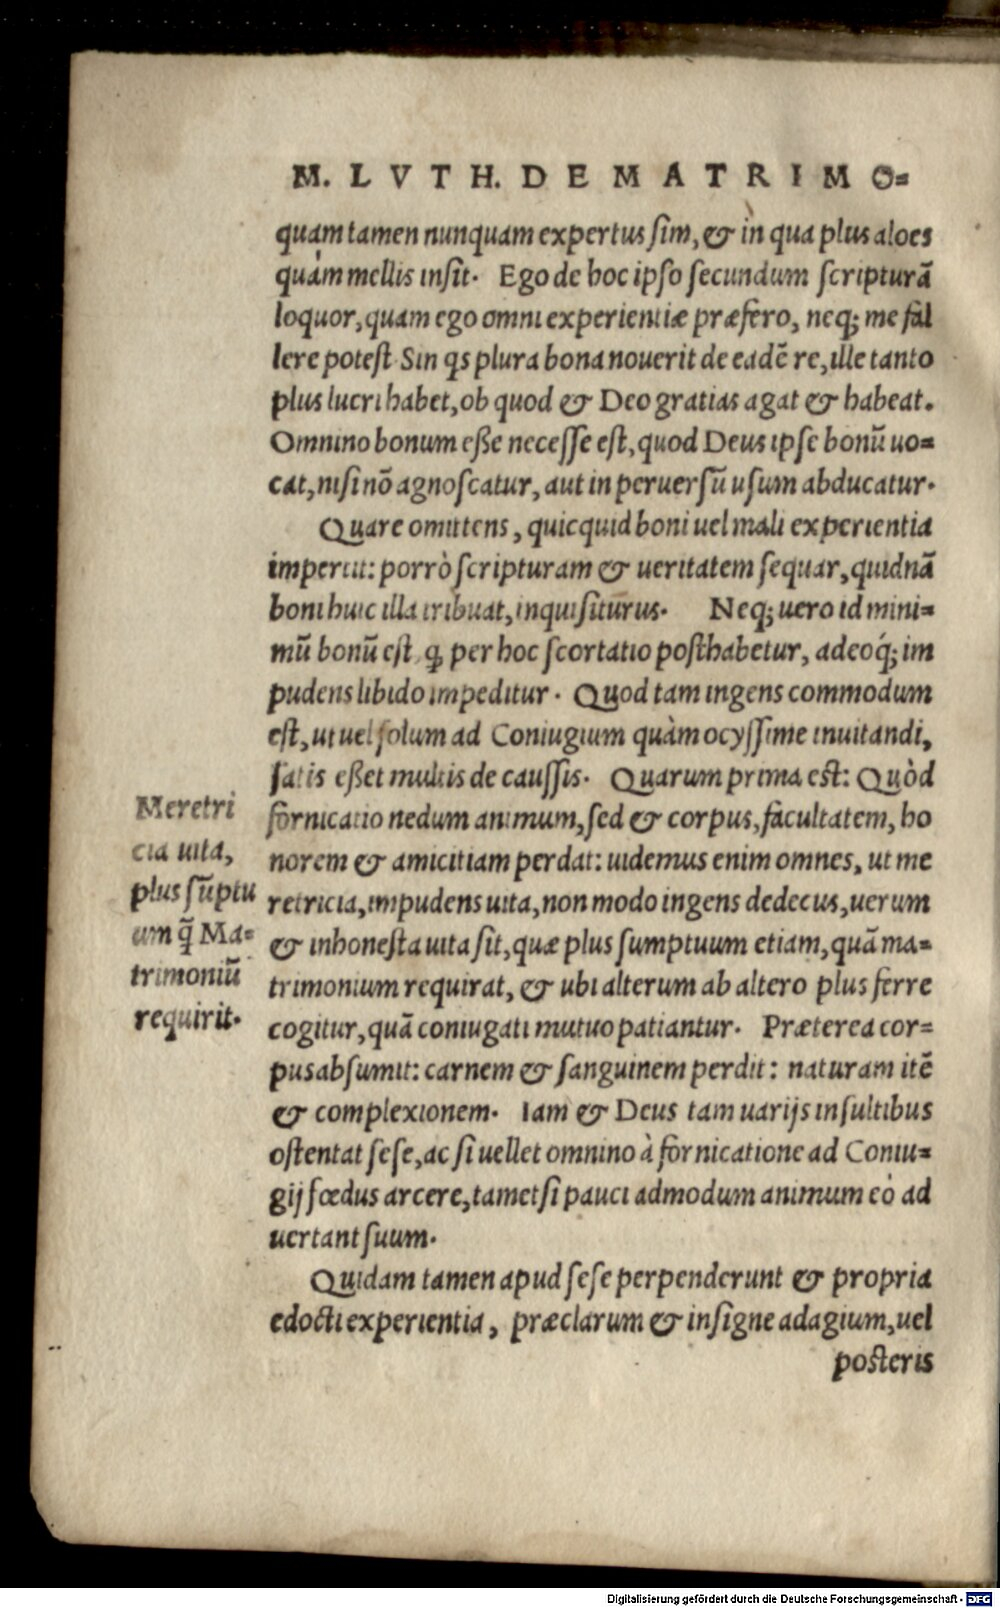 M. LVTH. DE MATRIMO=
quàm tamen nunquam expertus ſim, & in qua plus aloes
quàm mellis inſit. Ego de hoc ipſo ſecundum ſcripturã
loquor, quam ego omni experientiæ præfero, neq; me fal
lere poteſt Sin qs plura bona nouerit de eadẽ re, ille tanto
plus lucri habet, ob quod & Deo gratias agat & habeat.
Omnino bonum eſſe neceſſe eſt, quod Deus ipſe bonũ uo=
cat, niſi nõ agnoſcatur, aut in peruerſũ uſum abducatur.
Quare omittens, quicquid boni uel mali experientia
impertit: porrò ſcripturam & ueritatem ſequar, quidnã
boni huic illa tribuat, inquiſiturus. Neq; uero id mini=
mũ bonũ eſt, ꝙ per hoc ſcortatio poſthabetur, adeoq́; im
pudens libido impeditur. Quod tam ingens commodum
eſt, ut uel ſolum ad Coniugium quàm ocyſſime inuitandi,
ſatis eſſet multis de cauſſis. Quarum prima eſt: Quòd
fornicatio nedum animum, ſed & corpus, facultatem, ho
norem & amicitiam perdat: uidemus enim omnes, ut me
retricia, impudens uita, non modo ingens dedecus, uerum
& inhoneſta uita ſit, quæ plus ſumptuum etiam, quã ma=
trimonium requirat, & ubi alterum ab altero plus ferre
cogitur, quã coniugati mutuo patiantur. Præterea cor=
pus abſumit: carnem & ſanguinem perdit: naturam itẽ
& complexionem. Iam & Deus tam uarijs inſultibus
oſtentat ſeſe, ac ſi uellet omnino à fornicatione ad Coniu=
gij fœdus arcere, tametſi pauci admodum animum eò ad
uertant ſuum.
Quidam tamen apud ſeſe perpenderunt & propria
edocti experientia, præclarum & inſigne adagium, uel
poſteris
Meretri
cia uita,
plus ſũptu
um q̃ Ma=
trimoniũ
requirit.
Digitalisierung gefördert durch die Deutsche Forschungsgemeinschaft - DFG